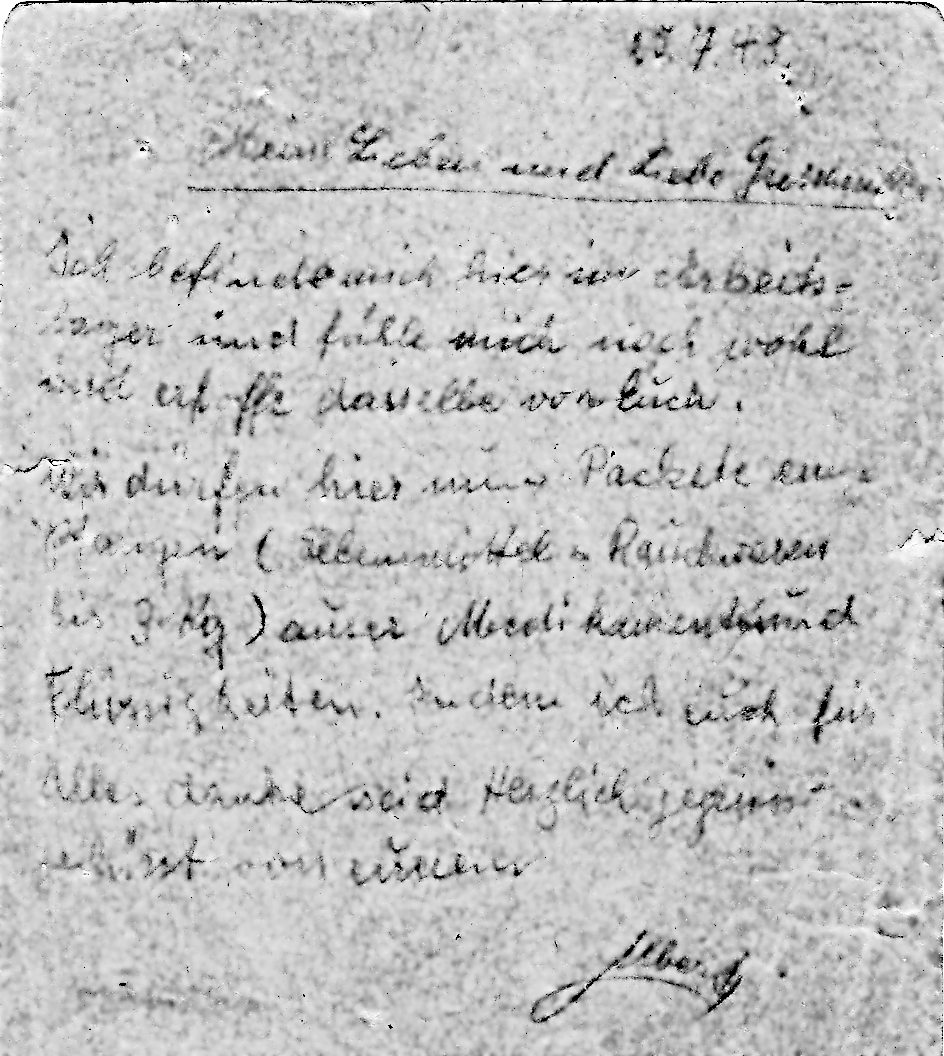 15.7.43.
Meine Lieben und Liebe Grossmutter
Ich befinde mich hier im Arbeits-
lager und fühle mich noch wohl
und erhoffe dasselbe von Euch.
Wir dürfen hier nur Packete em-
pfangen (Lebensmittel u Rauchwaren
bis 3 Kg) auser Medikamente und
Flüssigkeiten. Indem ich Euch für
alles danke seid Herzlich gegrüsst
geküsst von eurem
Albert